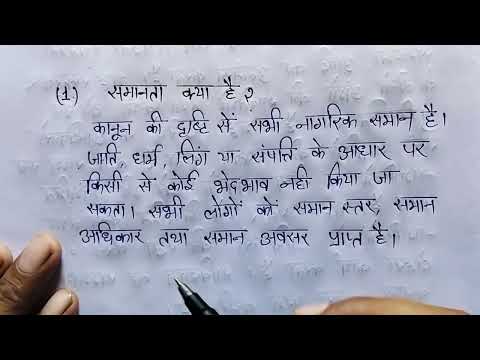 (1) समानता क्या है ?
कानून की दृष्टि सें सभी नागरिक समान है।
जाति, धर्म, लिंग या संपत्ति के आधार पर
किसी से कोई भेदभाव नही किया जा
सकता। सभी लोगों कों समान स्तर, समान
अधिकार तथा समान अवसर प्राप्त है।